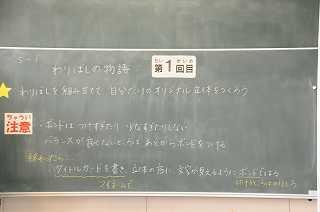 5-1
わりばしの物語
第1回目
だい かいめ
わりばしを組み立てて 自分だけのオリジナル立体をつくろう
ちゅうい
注意
・ボンドは つけすぎたり 少なすぎたりしない
バランスが 良くないところは あとからボンドをつける
終わったら
タイトルカードを書き、立体の底に 文字が見えるように ボンドではる